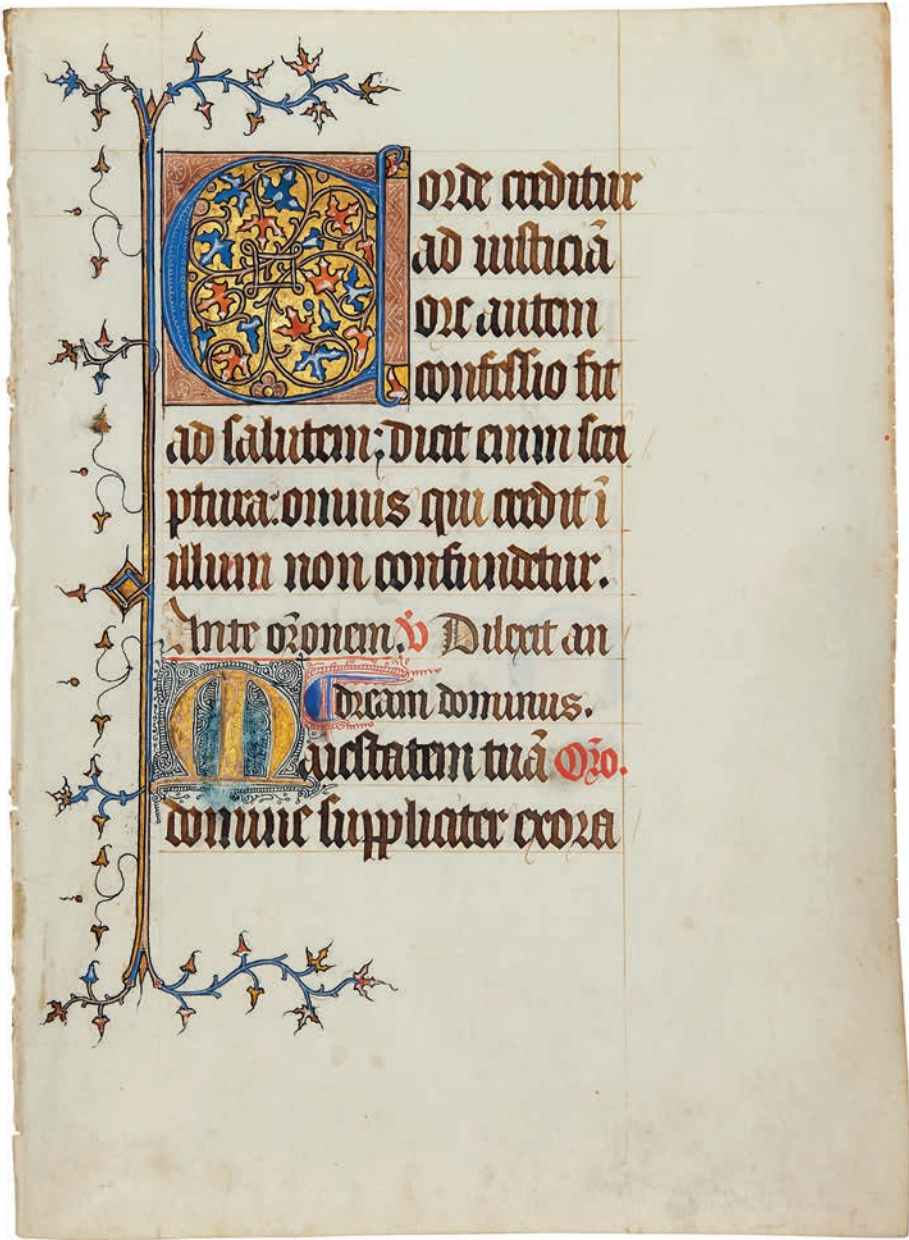 Corde creditur
ad iusticiā
ore autem
confessio fit
ad salutem; dicit enim scri
ptura: omnis qui credit ī
illum non confundetur.
Ante orōnem. v̄ Dilexit an
dream dominus.
Maiestatem tuā Orō.
domine suppliciter exora